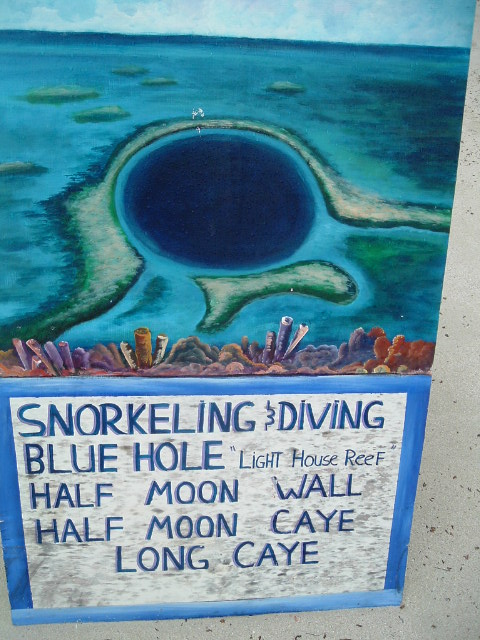 SNORKELING & DIVING
BLUE HOLE "LIGHT HOUSE REEF"
HALF MOON WALL
HALF MOON CAYE
LONG CAYE